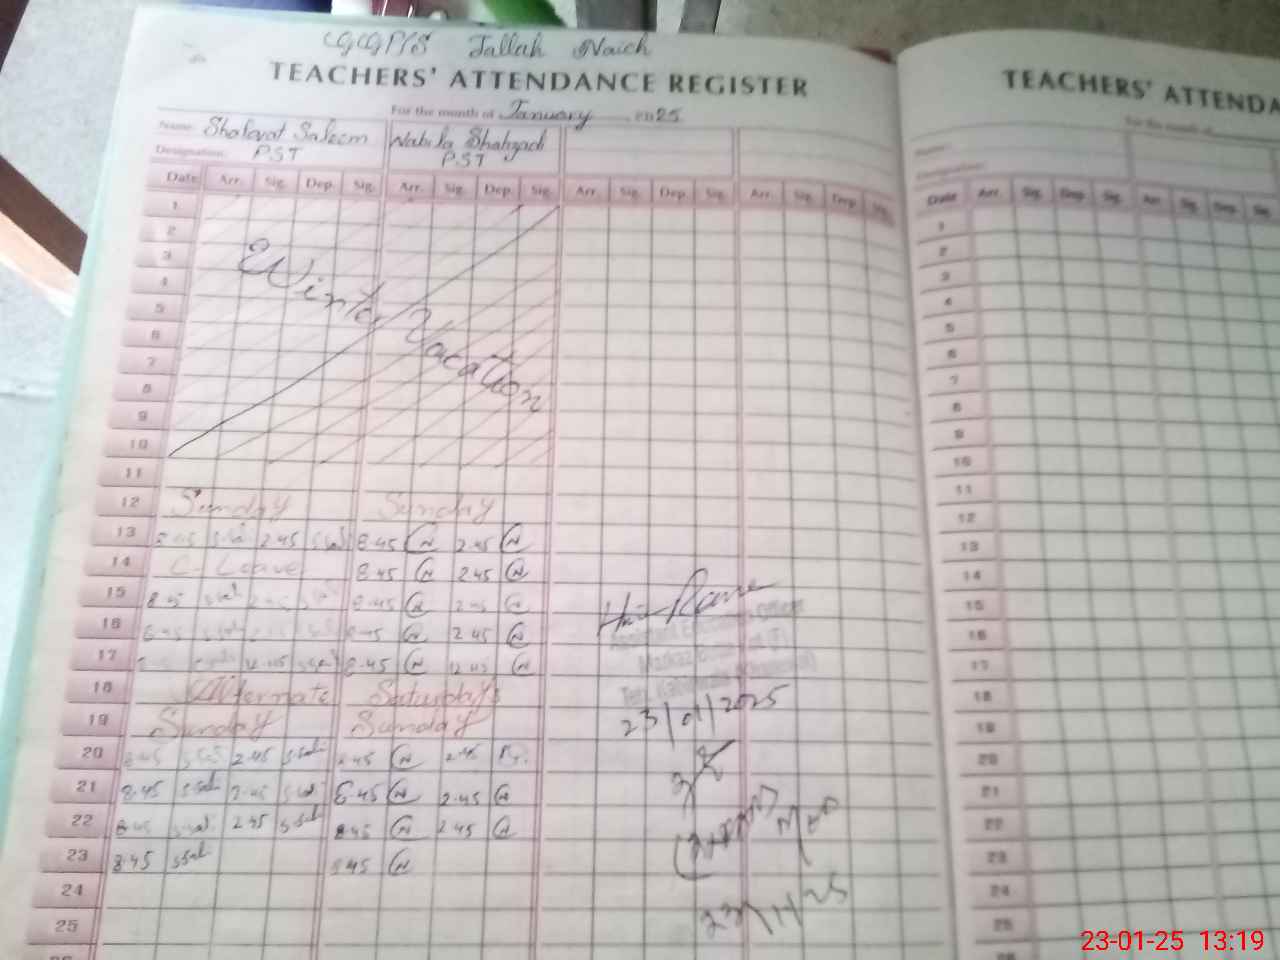 GGPS Jallah Naich
TEACHERS' ATTENDANCE REGISTER
For the month of January 2025
Name: Shafqat Saleem Nabila Shahzadi
Designation: PST PST
Date Arr. Sig. Dep. Sig. Arr. Sig. Dep. Sig. Arr. Sig. Dep. Sig. Arr. Sig. Dep. Sig.
1
2
3
4
5
6
7
8
9
10
Winter Vacation
11
12 Sunday Sunday
13 8.45 S.Sal 2.45 S.Sal 8.45 N 2.45 N
14 C. Leave 8.45 N 2.45 N
15 8.45 S.Sal 2.45 S.Sal 8.45 N 2.45 N
16 8.45 S.Sal 2.45 S.Sal 8.45 N 2.45 N
17 S.Sal 12.45 S.Sal 8.45 N 12.45 N
18 Alternate Saturday
19 Sunday Sunday
20 8.45 S.Sal 2.45 S.Sal 8.45 N 2.45
21 8.45 S.Sal 2.45 S.Sal 8.45 N 2.45 N
22 8.45 S.Sal 2.45 S.Sal 8.45 N 2.45 N
23 8.45 S.Sal 8.45 N
24
25
Assistant Education Officer
Markaz (F)
Teh. Kabirwala (Khanewal)
23/01/2025
TEACHERS' ATTENDA
For the month of
Name:
Designation:
Date Arr. Sig. Dep. Sig. Arr. Sig. Dep. Sig.
1
2
3
4
5
6
7
8
9
10
11
12
13
14
15
16
17
18
19
20
21
22
23
24
25
23-01-25 13:19